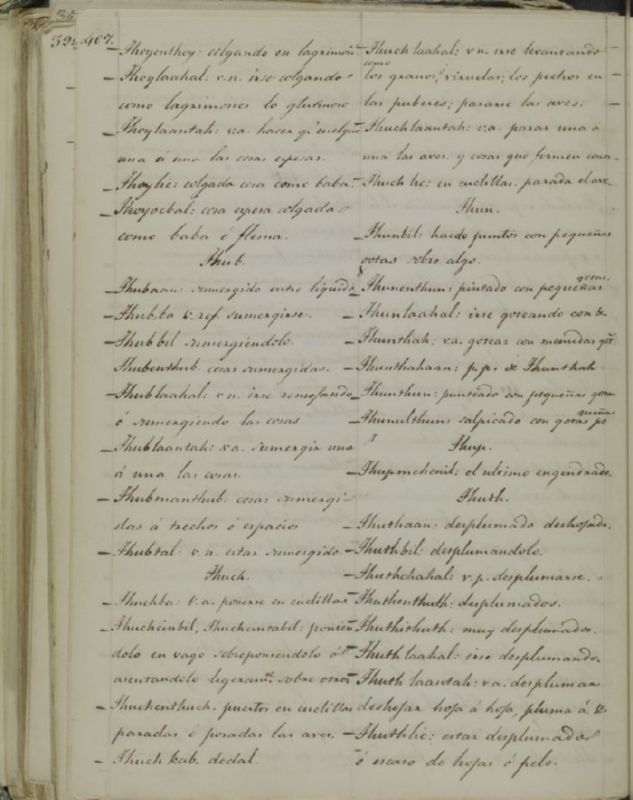 39. 407.
Thoyenthoy: colgando en lagrimon.
Thoylaahal: v.n. irse colgando
como lagrimones lo glutinoso
Thoylaantah: v.a. hacer q.e cuelgue
una á una las cosas espesas.
Thoylic: colgada cosa como baba.
Thoyocbal: cosa espesa colgada
como baba ó flema.
Thub.
Thubaan: sumergido entre liquido
Thubba v. ref. sumergirse.
Thubbil sumergiendolo.
Thubenthub cosas sumergidas.
Thublaahal: v.n. irse remojando
ó sumergiendo las cosas.
Thublaantah: v.a. sumergir una
á una las cosas.
Thubmanthub: cosas sumergi-
das á trechos ó espacios
Thubtal: v.n. estar sumergido.
Thuch.
Thuchba: v.a. ponerse en cuclillas
Thuchcinbil, Thuchcintabil: ponien
dolo en vago sobreponiendolo ó
asentandolo ligeram.te sobre otro
Thuchenthuch. puestos en cuclillas
paradas ó posadas las aves.
Thuch kab. dedal.
Thuchlaahal: v.n. irse levantando
como
los granos, viruelas; los pechos en
las puberes; pararse las aves.
Thuchlaantah: v.a. parar una a
una las aves y cosas que formen
Thuchlic: en cuclillas. parada el ave.
Thun.
Thunbil: hacer puntos con pequeñas
gotas sobre algo.
Thunenthun: pintado con pequeñas
gotas
Thunlaahal: irse goteando con
Thunthah: v.a. gotear con menudas got.
Thunthahaan: p.p. de Thunthah
Thunthun: punteado con pequeñas gotas
Thunulthun: salpicado con gotas pe
queñas
Thup.
Thupmehenil: el ultimo engendrado.
Thuth.
Thuthaan: desplumado deshojado.
Thuthbil: desplumandolo.
Thuthchahal: v.p. desplumarse.
Thuthenthuth: desplumados.
Thuthuthuth: muy desplumados.
Thuthlaahal: irse desplumando.
Thuthlaantah: v.a. desplumar
deshojar hoja á hoja, pluma á
Thuthlic: estar desplumado
ó escaso de hojas ó pelo.